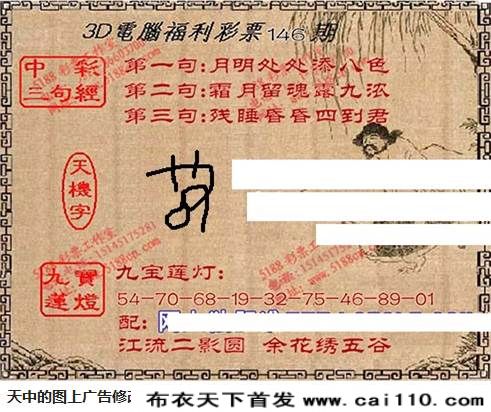 3D電腦福利彩票146期
中彩
三句經
第一句:月明处处添八色
第二句:霜月留魂露九浓
第三句:残睡昏昏四到君
天機字
九寶
蓮燈
九宝莲灯:
54-70-68-19-32-75-46-89-01
配:
江流二影圆 余花绣五谷
天中的图上广告修
布衣天下首发 www.cai110.com